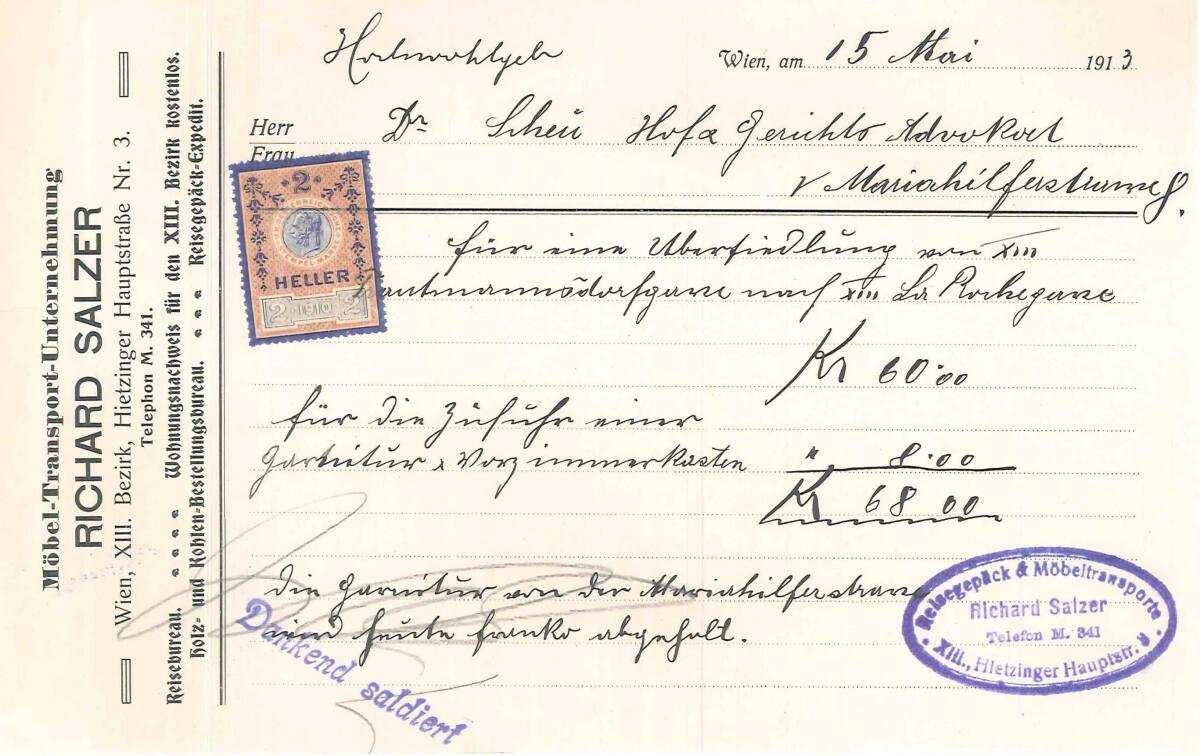 Möbel-Transport-Unternehmung
RICHARD SALZER
Wien, XIII. Bezirk, Hietzinger Hauptstraße Nr. 3.
Telephon M. 341.
Reisebureau. Wohnungsnachweis für den XIII. Bezirk kostenlos.
Holz- und Kohlen-Bestellungsbureau. Reisegepäck-Expedit.
Hochwohlgeb
Wien, am 15 Mai 1913
Herr Dr Scheu Hof & Gerichts Advokat
Frau
V Mariahilferstrasse
2
HELLER
2 1910 2
für eine Übersiedlung von XIII
nach XIII La Rochegasse
Kr 60.00
für die Zufuhr einer
Garnitur & Vorzimmerkasten " 8.00
Kr 68 00
die Garnitur von der Mariahilferstrasse
wird heute franko abgeholt.
Dankend saldiert
Reisegepäck & Möbeltransporte
Richard Salzer
Telefon M. 341
XIII., Hietzinger Hauptstr.